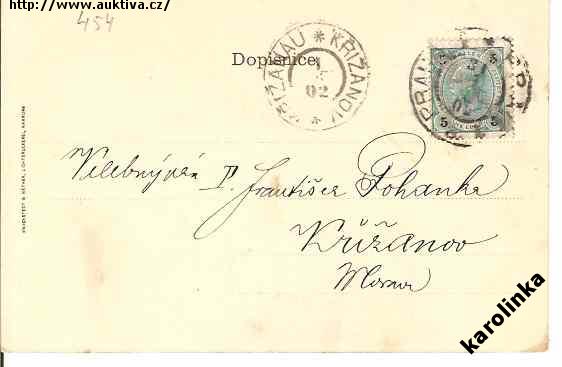 http://www.auktiva.cz/
454
Dopisnice.
KŘIŽANAU * KŘIŽANOV *
1
3
02
5 5
5 5
Velebný pán P. František Pohanka
Křižanov
Morava
karolinka